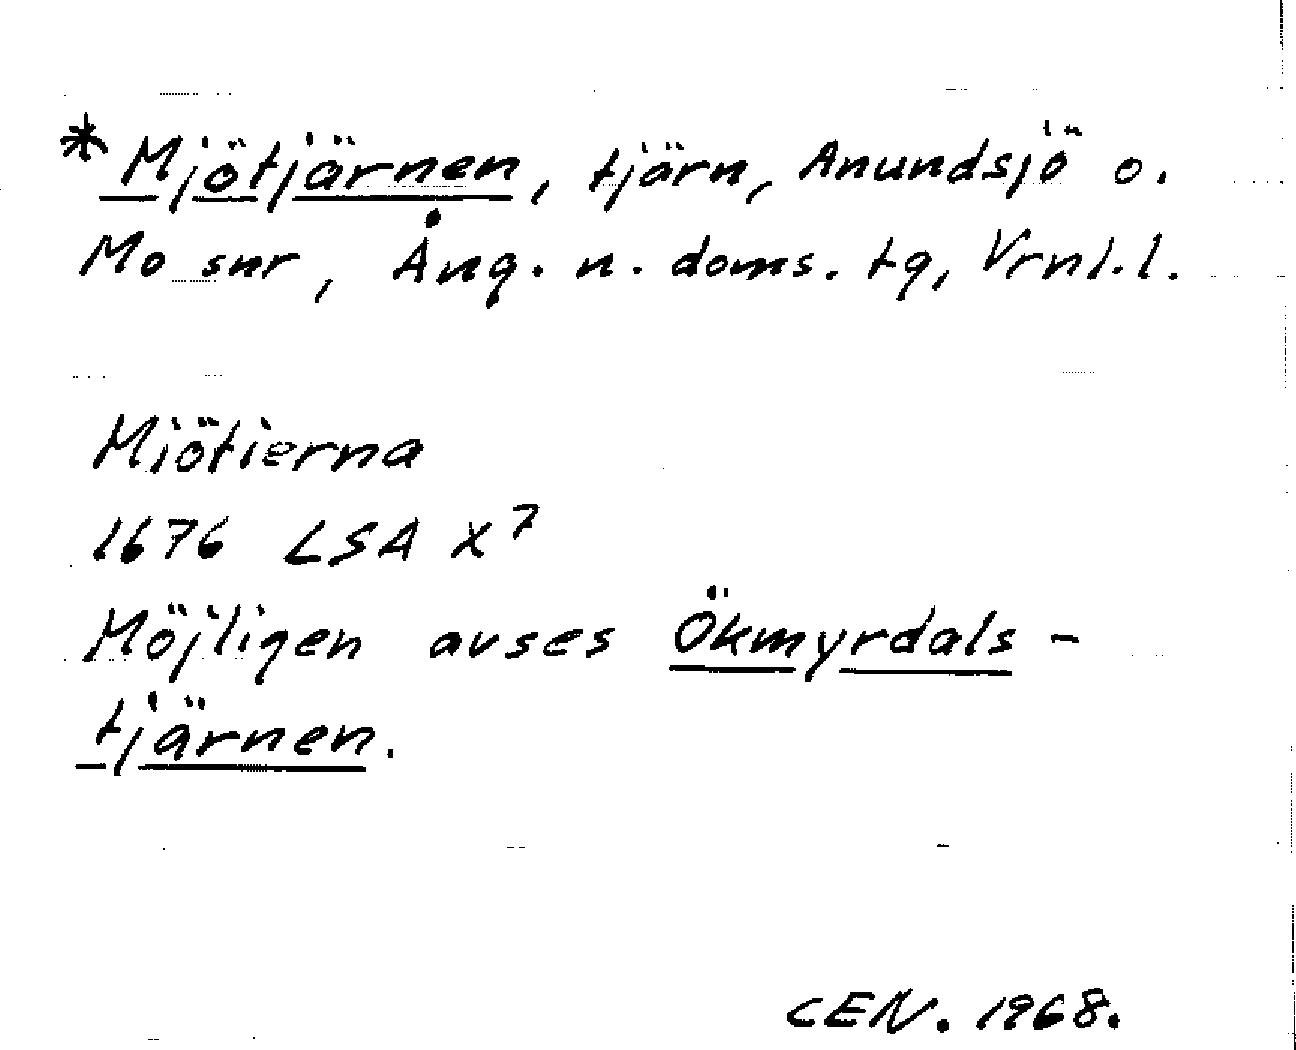 * Mjötjärnen, tjärn, Anundsjö o.
Mo snr, Ång. n. doms. tg, Vrnl.l.
Miötierna
1676 LSA X 7
Möjligen avses Ökmyrdals-
tjärnen.
CEN. 1968.